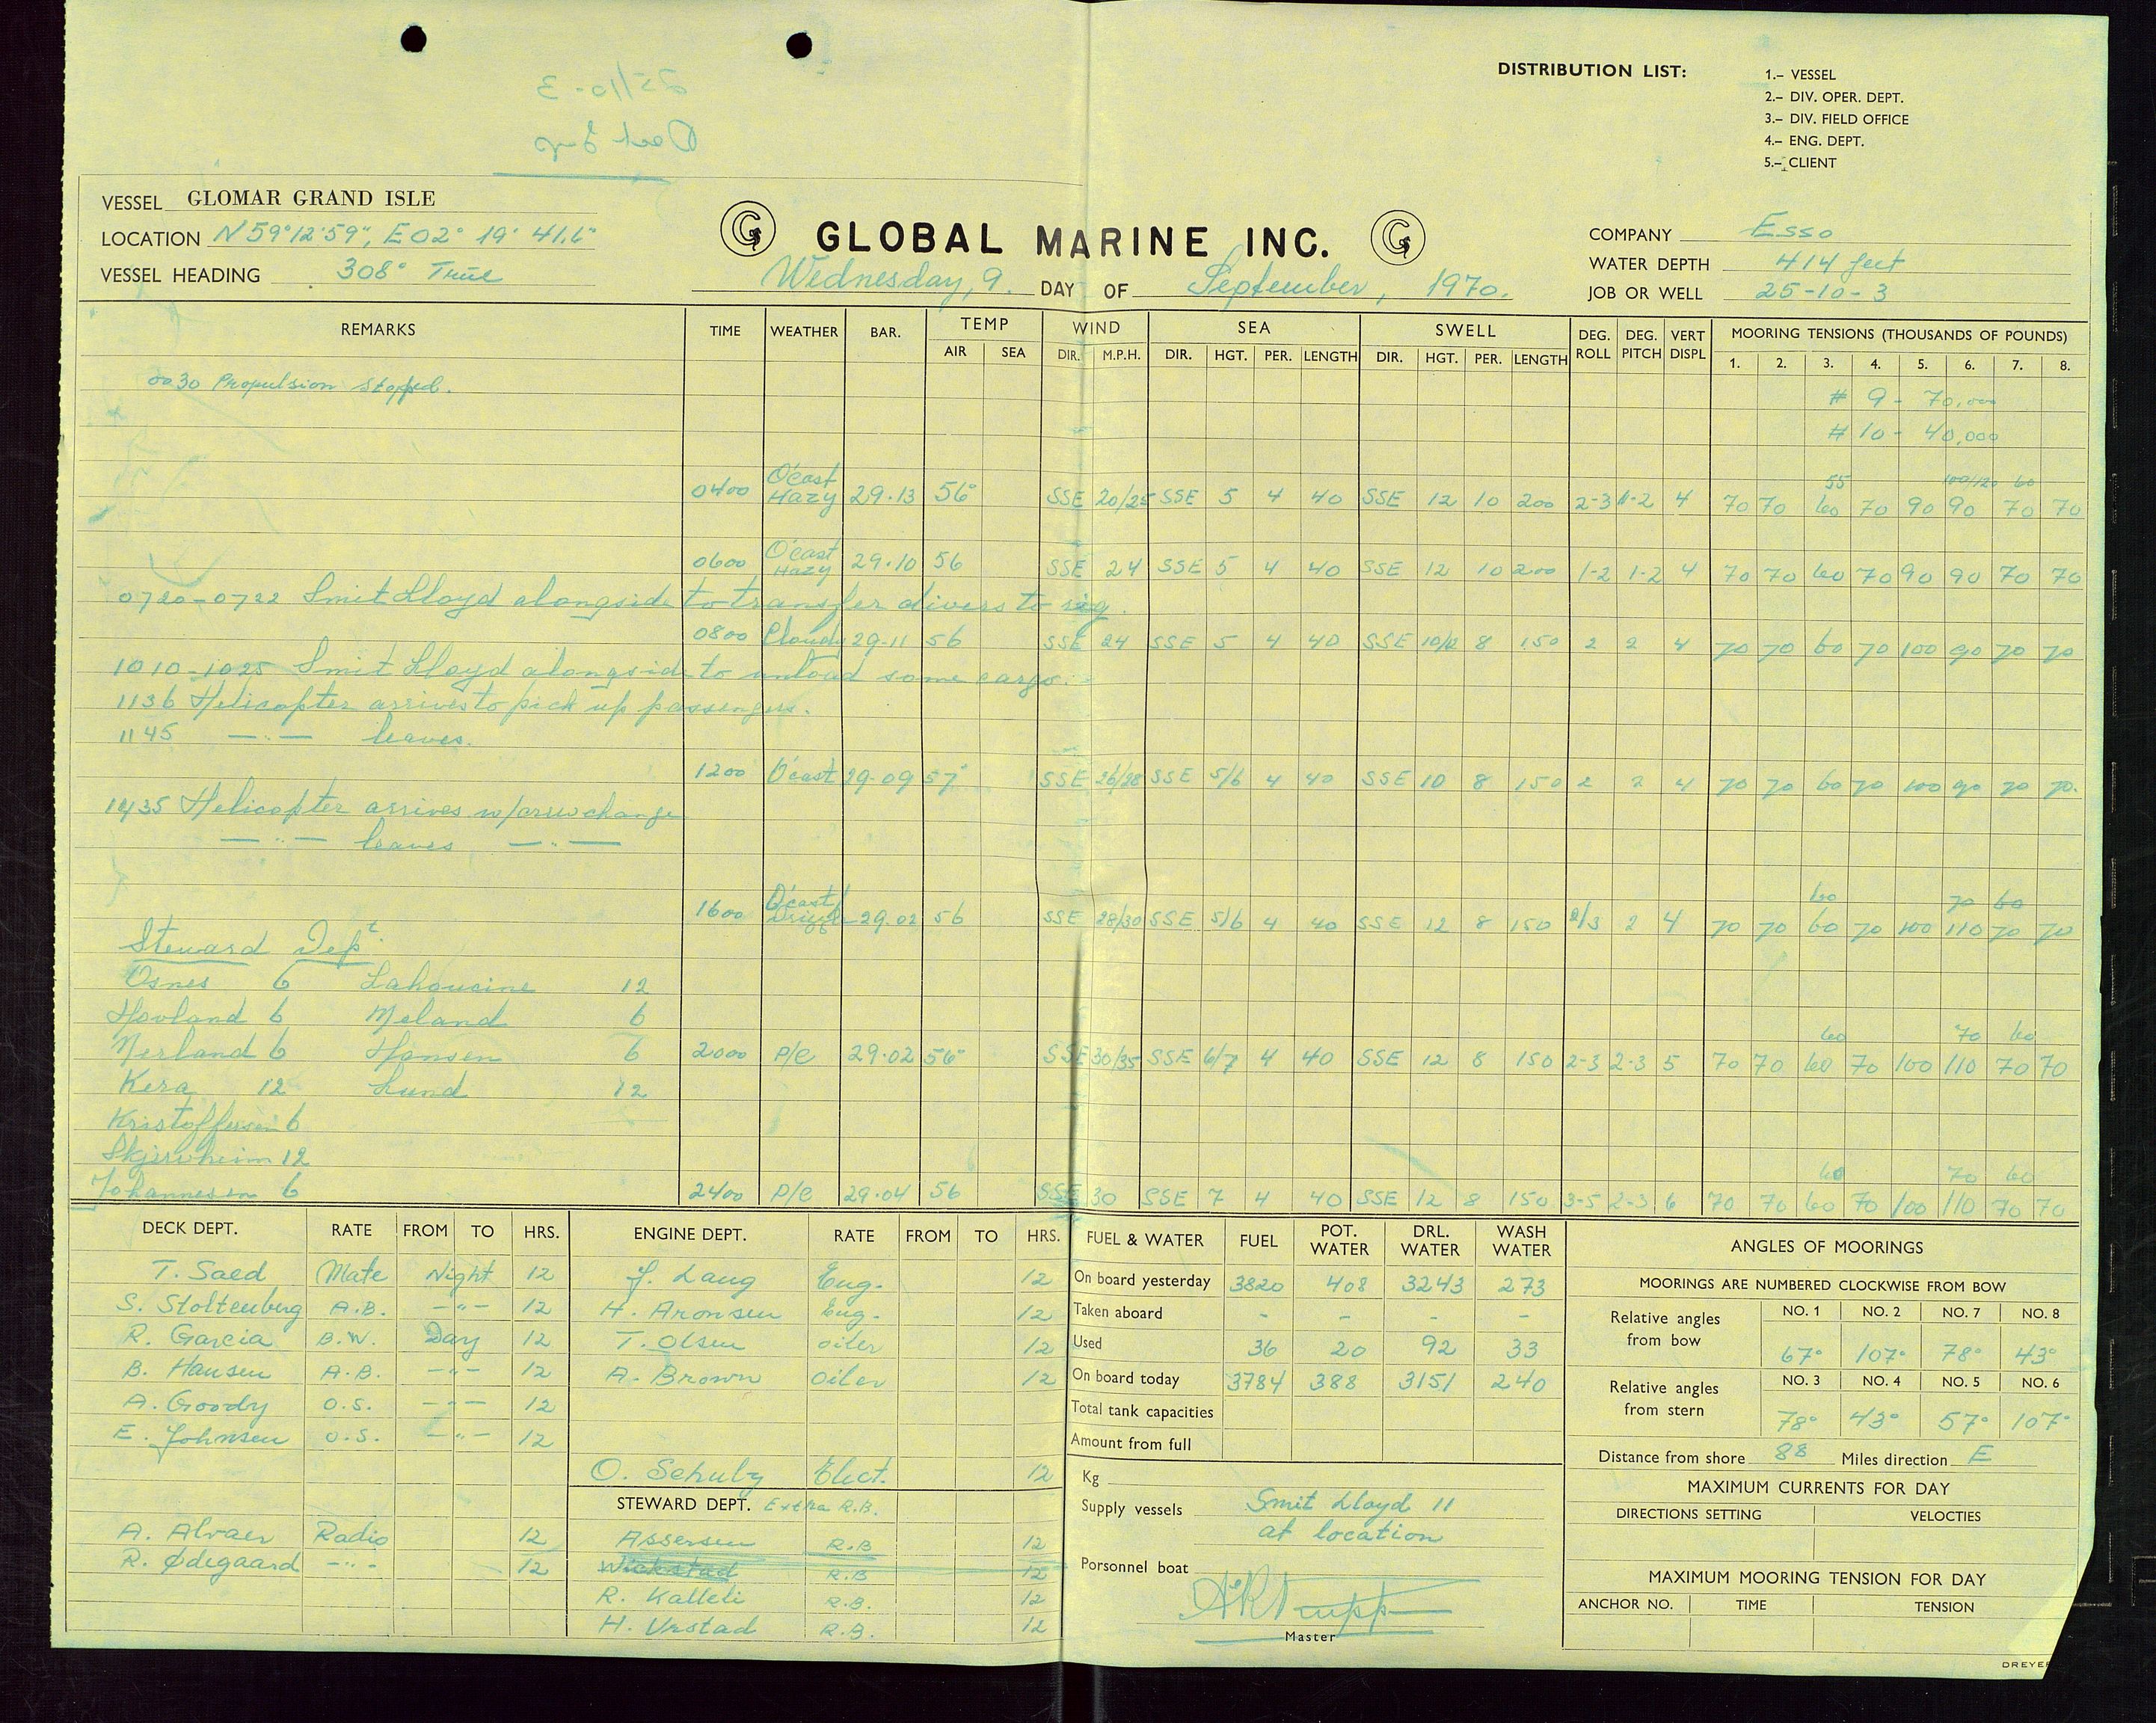 DISTRIBUTION LIST:
1.- VESSEL
2.- DIV. OPER. DEPT.
3.- DIV. FIELD OFFICE
4.- ENG. DEPT.
5.- CLIENT
25/10-3
VESSEL GLOMAR GRAND ISLE
LOCATION N 59°12'59", E 02° 19' 41.6"
VESSEL HEADING 308° True
GLOBAL MARINE INC.
Wednesday, 9. DAY OF September, 1970.
COMPANY Esso
WATER DEPTH 414 feet
JOB OR WELL 25-10-3
REMARKS TIME WEATHER BAR. TEMP WIND SEA SWELL DEG. ROLL DEG. PITCH VERT DISPL MOORING TENSIONS (THOUSANDS OF POUNDS)
AIR SEA DIR. M.P.H. DIR. HGT. PER. LENGTH DIR. HGT. PER. LENGTH 1. 2. 3. 4. 5. 6. 7. 8.
0030 Propulsion stopped.
# 9 - 70,000
# 10 - 40,000
55 100/120 60
0400 O'cast Hazy 29.13 56° SSE 20/25 SSE 5 4 40 SSE 12 10 200 2-3 1-2 4 70 70 60 70 90 90 70 70
0600 O'cast Hazy 29.10 56 SSE 24 SSE 5 4 40 SSE 12 10 200 1-2 1-2 4 70 70 60 70 90 90 70 70
0720-0722 Smit Lloyd alongside to transfer divers to rig.
0800 Cloudy 29.11 56 SSE 24 SSE 5 4 40 SSE 10/12 8 150 2 2 4 70 70 60 70 100 90 70 70
1010-1025 Smit Lloyd alongside to unload some cargo.
1136 Helicopter arrives to pick up passengers.
1145 —"— leaves.
1200 O'cast 29.09 57° SSE 26/28 SSE 5/6 4 40 SSE 10 8 150 2 2 4 70 70 60 70 100 90 70 70.
1435 Helicopter arrives w/crewchange
—"— leaves —"—
60 70 60
1600 O'cast/ Drizzle 29.02 56 SSE 28/30 SSE 5/6 4 40 SSE 12 8 150 2/3 2 4 70 70 60 70 100 110 70 70
Steward Dept.
Osnes 6 Lahoucine 12
Hovland 6 Meland 6
60 70 60
Nerland 6 Hansen 6 2000 P/C 29.02 56° SSE 30/35 SSE 6/7 4 40 SSE 12 8 150 2-3 2-3 5 70 70 60 70 100 110 70 70
Kera 12 Lund 12
Kristoffersen 6
Skjerveheim 12
60 70 60
Johannesen 6 2400 P/C 29.04 56 SSE 30 SSE 7 4 40 SSE 12 8 150 3-5 2-3 6 70 70 60 70 100 110 70 70
DECK DEPT. RATE FROM TO HRS.
T. Saed Mate Night 12
S. Stoltenberg A.B. —"— 12
R. Garcia B.W. Day 12
B. Hansen A.B. —"— 12
A. Goody O.S. —"— 12
E. Johnsen O.S. —"— 12
A. Alvaer Radio 12
R. Ødegaard —"— 12
ENGINE DEPT. RATE FROM TO HRS.
J. Laug Eng. 12
H. Aronsen Eng. 12
T. Olsen oiler 12
A. Brown Oiler 12
O. Schulz Elect. 12
STEWARD DEPT. Extra R.B.
Assersen R.B 12
Wickstad R.B 12
R. Kalleli R.B. 12
H. Urstad R.B. 12
FUEL & WATER FUEL POT. WATER DRL. WATER WASH WATER
On board yesterday 3820 408 3243 273
Taken aboard - - - -
Used 36 20 92 33
On board today 3784 388 3151 240
Total tank capacities
Amount from full
Kg
Supply vessels Smit Lloyd 11
at location
Porsonnel boat
Master
ANGLES OF MOORINGS
MOORINGS ARE NUMBERED CLOCKWISE FROM BOW
Relative angles from bow NO. 1 NO. 2 NO. 7 NO. 8
67° 107° 78° 43°
Relative angles from stern NO. 3 NO. 4 NO. 5 NO. 6
78° 43° 57° 107°
Distance from shore 88 Miles direction E
MAXIMUM CURRENTS FOR DAY
DIRECTIONS SETTING VELOCTIES
MAXIMUM MOORING TENSION FOR DAY
ANCHOR NO. TIME TENSION
DREYER